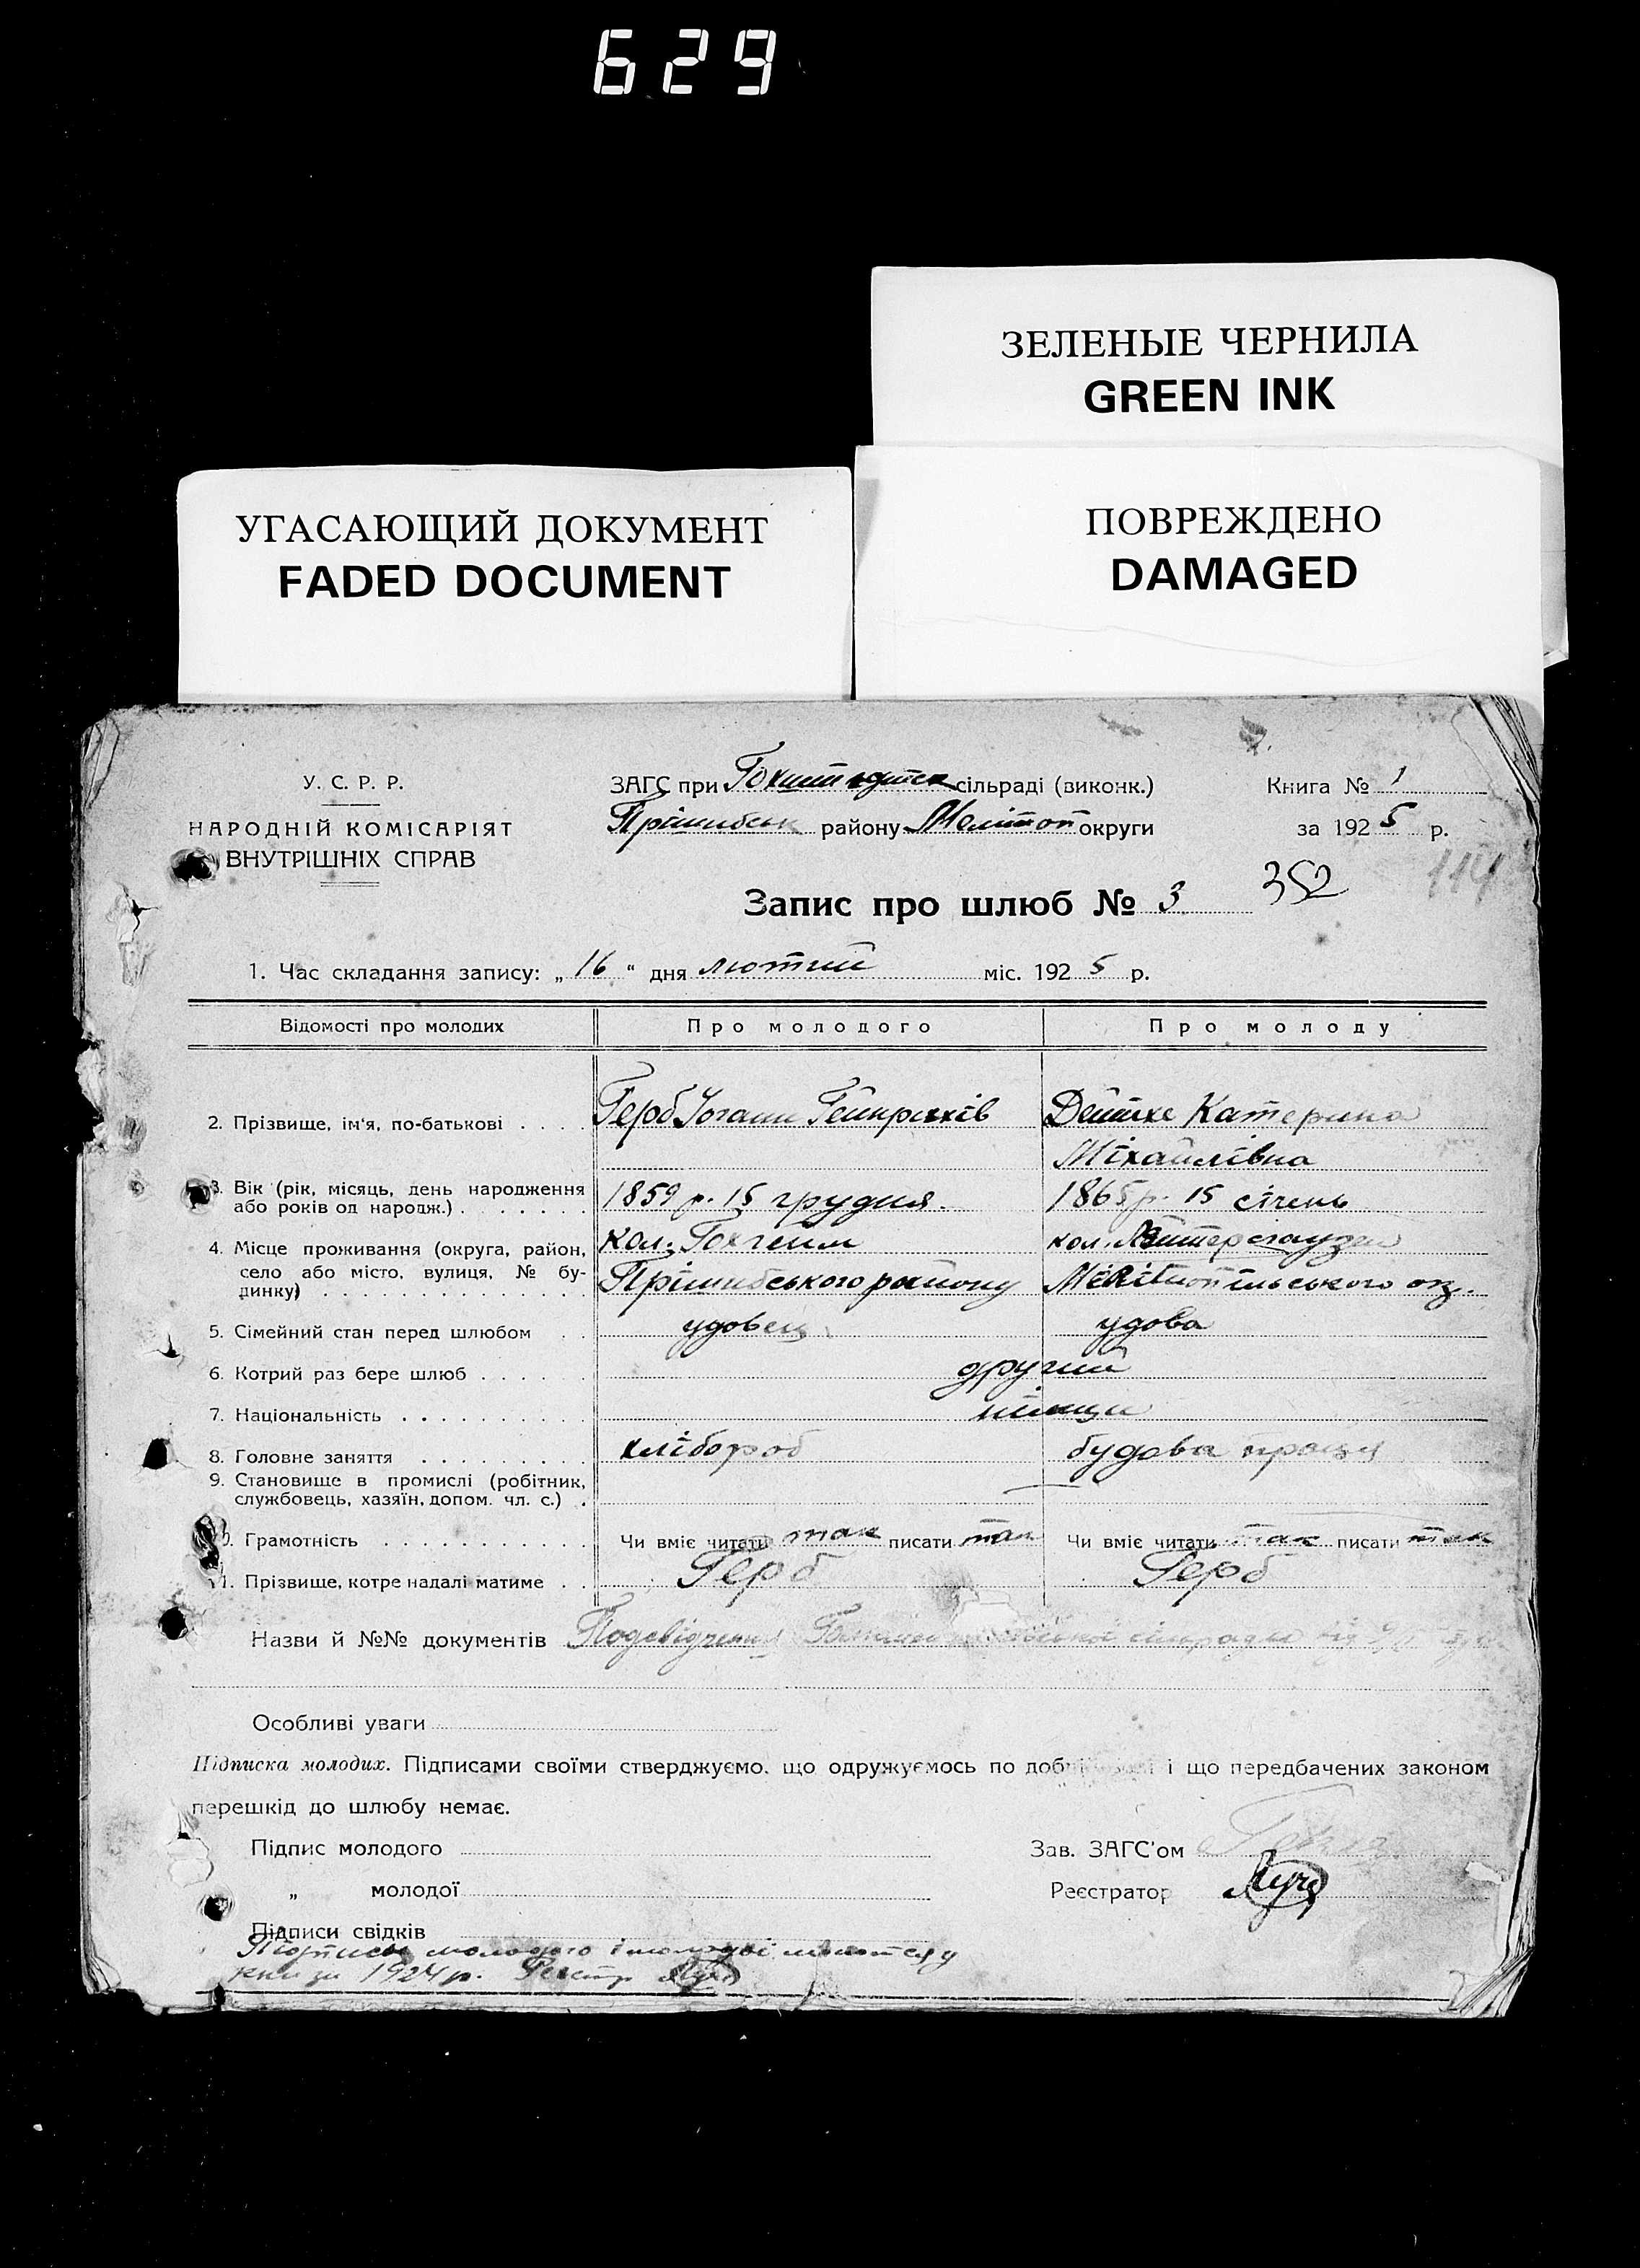 629
ЗЕЛЕНЫЕ ЧЕРНИЛА
GREEN INK
УГАСАЮЩИЙ ДОКУМЕНТ
FADED DOCUMENT
ПОВРЕЖДЕНО
DAMAGED
У. С. Р. Р.
НАРОДНІЙ КОМІСАРІЯТ
ВНУТРІШНІХ СПРАВ
ЗАГС при сільраді (виконк.)
Прішибськ району Мелітоп округи
Книга № 1
за 1925 р.
114
Запис про шлюб № 3 352
1. Час складання запису: „16“ дня лютий міс. 1925 р.
Відомості про молодих Про молодого Про молоду
2. Прізвище, ім'я, по-батькові . . . . Герб Йоганн Гейнрихів Дейтхе Катерина
Міхайлівна
3. Вік (рік, місяць, день народження
або років од народж.) . . . . . . 1859 р. 15 грудня. 1865 р. 15 січень
4. Місце проживання (округа, район, кол. Гохгейм кол.
село або місто, вулиця, № бу-
динку) . . . . . . . . . . . . . . Прішибського району Мелітопільського ок.
5. Сімейний стан перед шлюбом . . удовец удова
6. Котрий раз бере шлюб . . . . . . другий
7. Національність . . . . . . . . . . німци
8. Головне заняття . . . . . . . . . хлібороб
9. Становище в промислі (робітник,
службовець, хазяїн, допом. чл. с.) .
10. Грамотність . . . . . . . . . . . Чи вміє читати так писати так Чи вміє читати так писати так
11. Прізвище, котре надалі матиме . . Герб Герб
Назви й №№ документів Посвідчення сільради від
Особливі уваги
Підписка молодих. Підписами своїми стверджуємо, що одружуємось по добрій волі і що передбачених законом
перешкід до шлюбу немає.
Підпис молодого Зав. ЗАГС'ом
„ молодої Реєстратор
Підписи свідків
Підписи молодого і молодої
книзи 1924 р.